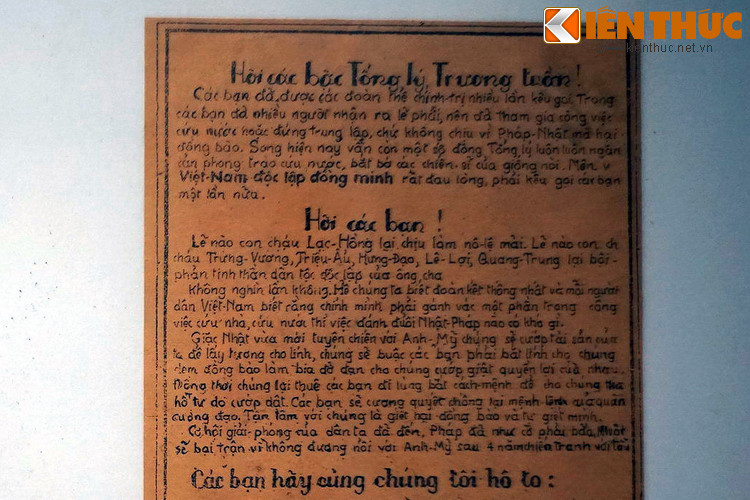 KIẾN THỨC
kienthuc.net.vn
Hỡi các bậc Tổng lý, Trương tuần!
Các bạn đã được các đoàn thể chính-trị nhiều lần kêu gọi. Trong
các bạn đã nhiều người nhận ra lẽ phải, nên đã tham gia công việc
cứu nước hoặc đứng trung lập, chứ không chịu vì Pháp-Nhật mà hại
đồng bào. Song hiện nay vẫn còn một số đông Tổng lý luôn luôn ngăn
cản phong trào cứu nước, bắt bớ các chiến-sĩ của giống nòi. Nên
Việt-Nam độc lập đồng minh rất đau lòng, phải kêu gọi các bạn
một lần nữa.
Hỡi các bạn!
Lẽ nào con cháu Lạc-Hồng lại chịu làm nô-lệ mãi. Lẽ nào con ch
cháu Trưng-Vương, Triệu-Ẩu, Hưng-Đạo, Lê-Lợi, Quang-Trung lại bội
phản tinh thần dân tộc độc lập của ông cha
Không nghìn lần không. Hễ chúng ta biết đoàn kết thống nhất và mỗi người
dân Việt-Nam biết rằng chính mình phải gánh vác một phần trong công
việc cứu nhà, cứu nước thì việc đánh đuổi Nhật-Pháp nào có khó gì.
Giặc Nhật vừa mới tuyên chiến với Anh-Mỹ chúng sẽ cướp tài sản của
ta để lấy lương cho lính, chúng sẽ buộc các bạn phải bắt lính cho chúng
đem đồng bào làm bia đỡ đạn cho chúng cướp giật quyền lợi của nhau.
Đồng thời chúng lại thuê các bạn đi lùng bắt cách-mệnh để cho chúng tha
hồ tự do cướp đất. Các bạn sẽ cương quyết chống lại mệnh-lệnh của quân
cường đạo. Tận tâm với chúng là giết hại đồng bào và tự giết mình.
Cơ hội giải-phóng của dân ta đã đến, Pháp đã như ở phải bảo, Nhật
sẽ bại trận vì không đương nổi với Anh-Mỹ sau 4 năm chiến tranh với Tầu
Các bạn hãy cùng chúng tôi hô to: